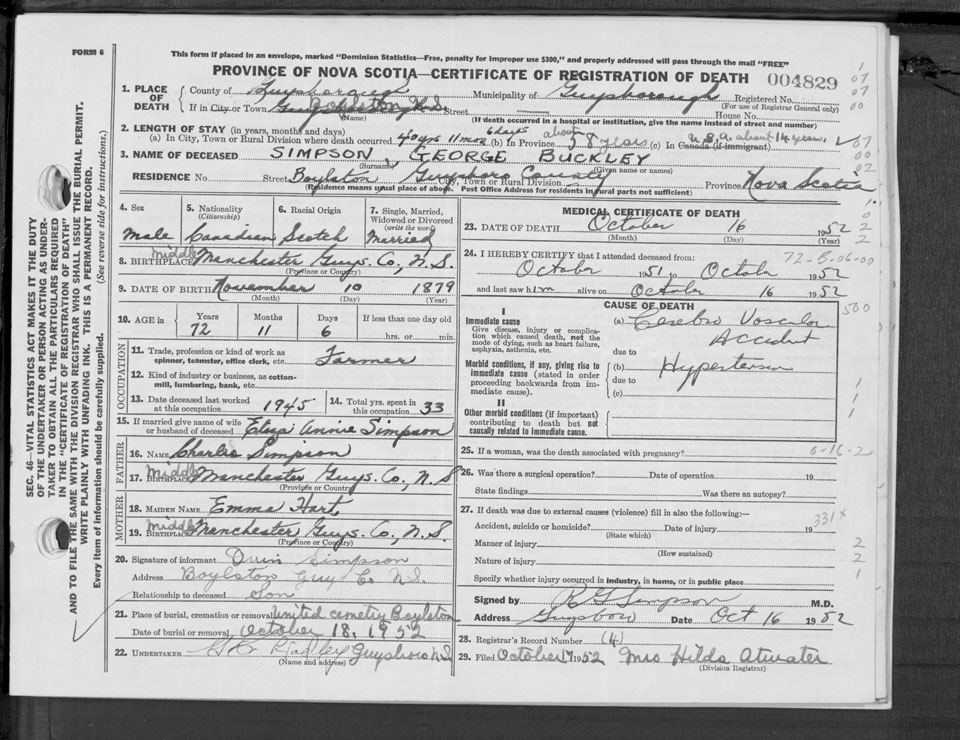 FORM 6
This form if placed in an envelope, marked "Dominion Statistics—Free, penalty for improper use $300," and properly addressed will pass through the mail "FREE"
PROVINCE OF NOVA SCOTIA—CERTIFICATE OF REGISTRATION OF DEATH 004829
1. PLACE OF DEATH
County of Guysborough Municipality of Guysborough Registered No.
(For use of Registrar General only)
If in City or Town Boylston N.S. Street House No.
(Name) (If death occurred in a hospital or institution, give the name instead of street and number)
2. LENGTH OF STAY (in years, months and days)
(a) In City, Town or Rural Division where death occurred 40 yrs 11 mos 6 days (b) In Province about 58 years (c) In Canada (if immigrant) U.S.A. about 14 years
3. NAME OF DECEASED SIMPSON, GEORGE BUCKLEY
(Surname) (Given name or names)
RESIDENCE No. Street Boylston Guysboro County Province Nova Scotia
City, Town or Rural Division
(Residence means usual place of abode. Post Office Address for residents in rural parts not sufficient)
4. Sex
Male
5. Nationality
(Citizenship)
Canadian
6. Racial Origin
Scotch
7. Single, Married, Widowed or Divorced
(write the word)
Married
8. BIRTHPLACE Middle Manchester Guys. Co., N.S.
(Province or Country)
9. DATE OF BIRTH November 10 1879
(Month) (Day) (Year)
10. AGE in Years Months Days If less than one day old
72 11 6 hrs. or min.
OCCUPATION
11. Trade, profession or kind of work as spinner, teamster, office clerk, etc. Farmer
12. Kind of industry or business, as cotton-mill, lumbering, bank, etc.
13. Date deceased last worked at this occupation 1945
14. Total yrs. spent in this occupation 33
15. If married give name of wife or husband of deceased Eliza Annie Simpson
FATHER
16. NAME Charlie Simpson
17. BIRTHPLACE Middle Manchester Guys. Co., N.S
(Province or Country)
MOTHER
18. MAIDEN NAME Emma Hart
19. BIRTHPLACE Middle Manchester Guys. Co., N.S.
(Province or Country)
20. Signature of informant Simpson
Address Boylston Guy Co N.S.
Relationship to deceased Son
21. Place of burial, cremation or removal United cemetry Boylston
Date of burial or removal October 18, 1952
22. UNDERTAKER Guysboro N.S
(Name and address)
MEDICAL CERTIFICATE OF DEATH
23. DATE OF DEATH October 16 1952
(Month) (Day) (Year)
24. I HEREBY CERTIFY that I attended deceased from: 72-B-06-00
October 1951 to October 1952
and last saw him alive on October 16 1952
CAUSE OF DEATH
I
Immediate cause
Give disease, injury or complication which caused death, not the mode of dying, such as heart failure, asphyxia, asthenia, etc.
(a) Cerebro Vascular Accident
due to
Morbid conditions, if any, giving rise to immediate cause (stated in order proceeding backwards from immediate cause).
(b) Hypertension
due to
(c)
II
Other morbid conditions (if important) contributing to death but not causally related to immediate cause.
25. If a woman, was the death associated with pregnancy?
26. Was there a surgical operation? Date of operation 19
State findings Was there an autopsy?
27. If death was due to external causes (violence) fill in also the following:—
Accident, suicide or homicide? Date of injury 19
(State which)
Manner of injury
(How sustained)
Nature of injury
Specify whether injury occurred in industry, in home, or in public place
Signed by R G Simpson M.D.
Address Guysboro Date Oct 16 1952
28. Registrar's Record Number (4)
29. Filed October 17 1952 Mrs Hilda Atwater
(Division Registrar)
SEC. 46—VITAL STATISTICS ACT MAKES IT THE DUTY
OF THE UNDERTAKER OR PERSON ACTING AS UNDER-
TAKER TO OBTAIN ALL THE PARTICULARS REQUIRED
IN THE "CERTIFICATE OF REGISTRATION OF DEATH"
AND TO FILE THE SAME WITH THE DIVISION REGISTRAR WHO SHALL ISSUE THE BURIAL PERMIT.
WRITE PLAINLY WITH UNFADING INK. THIS IS A PERMANENT RECORD.
Every item of information should be carefully supplied. (See reverse side for instructions.)